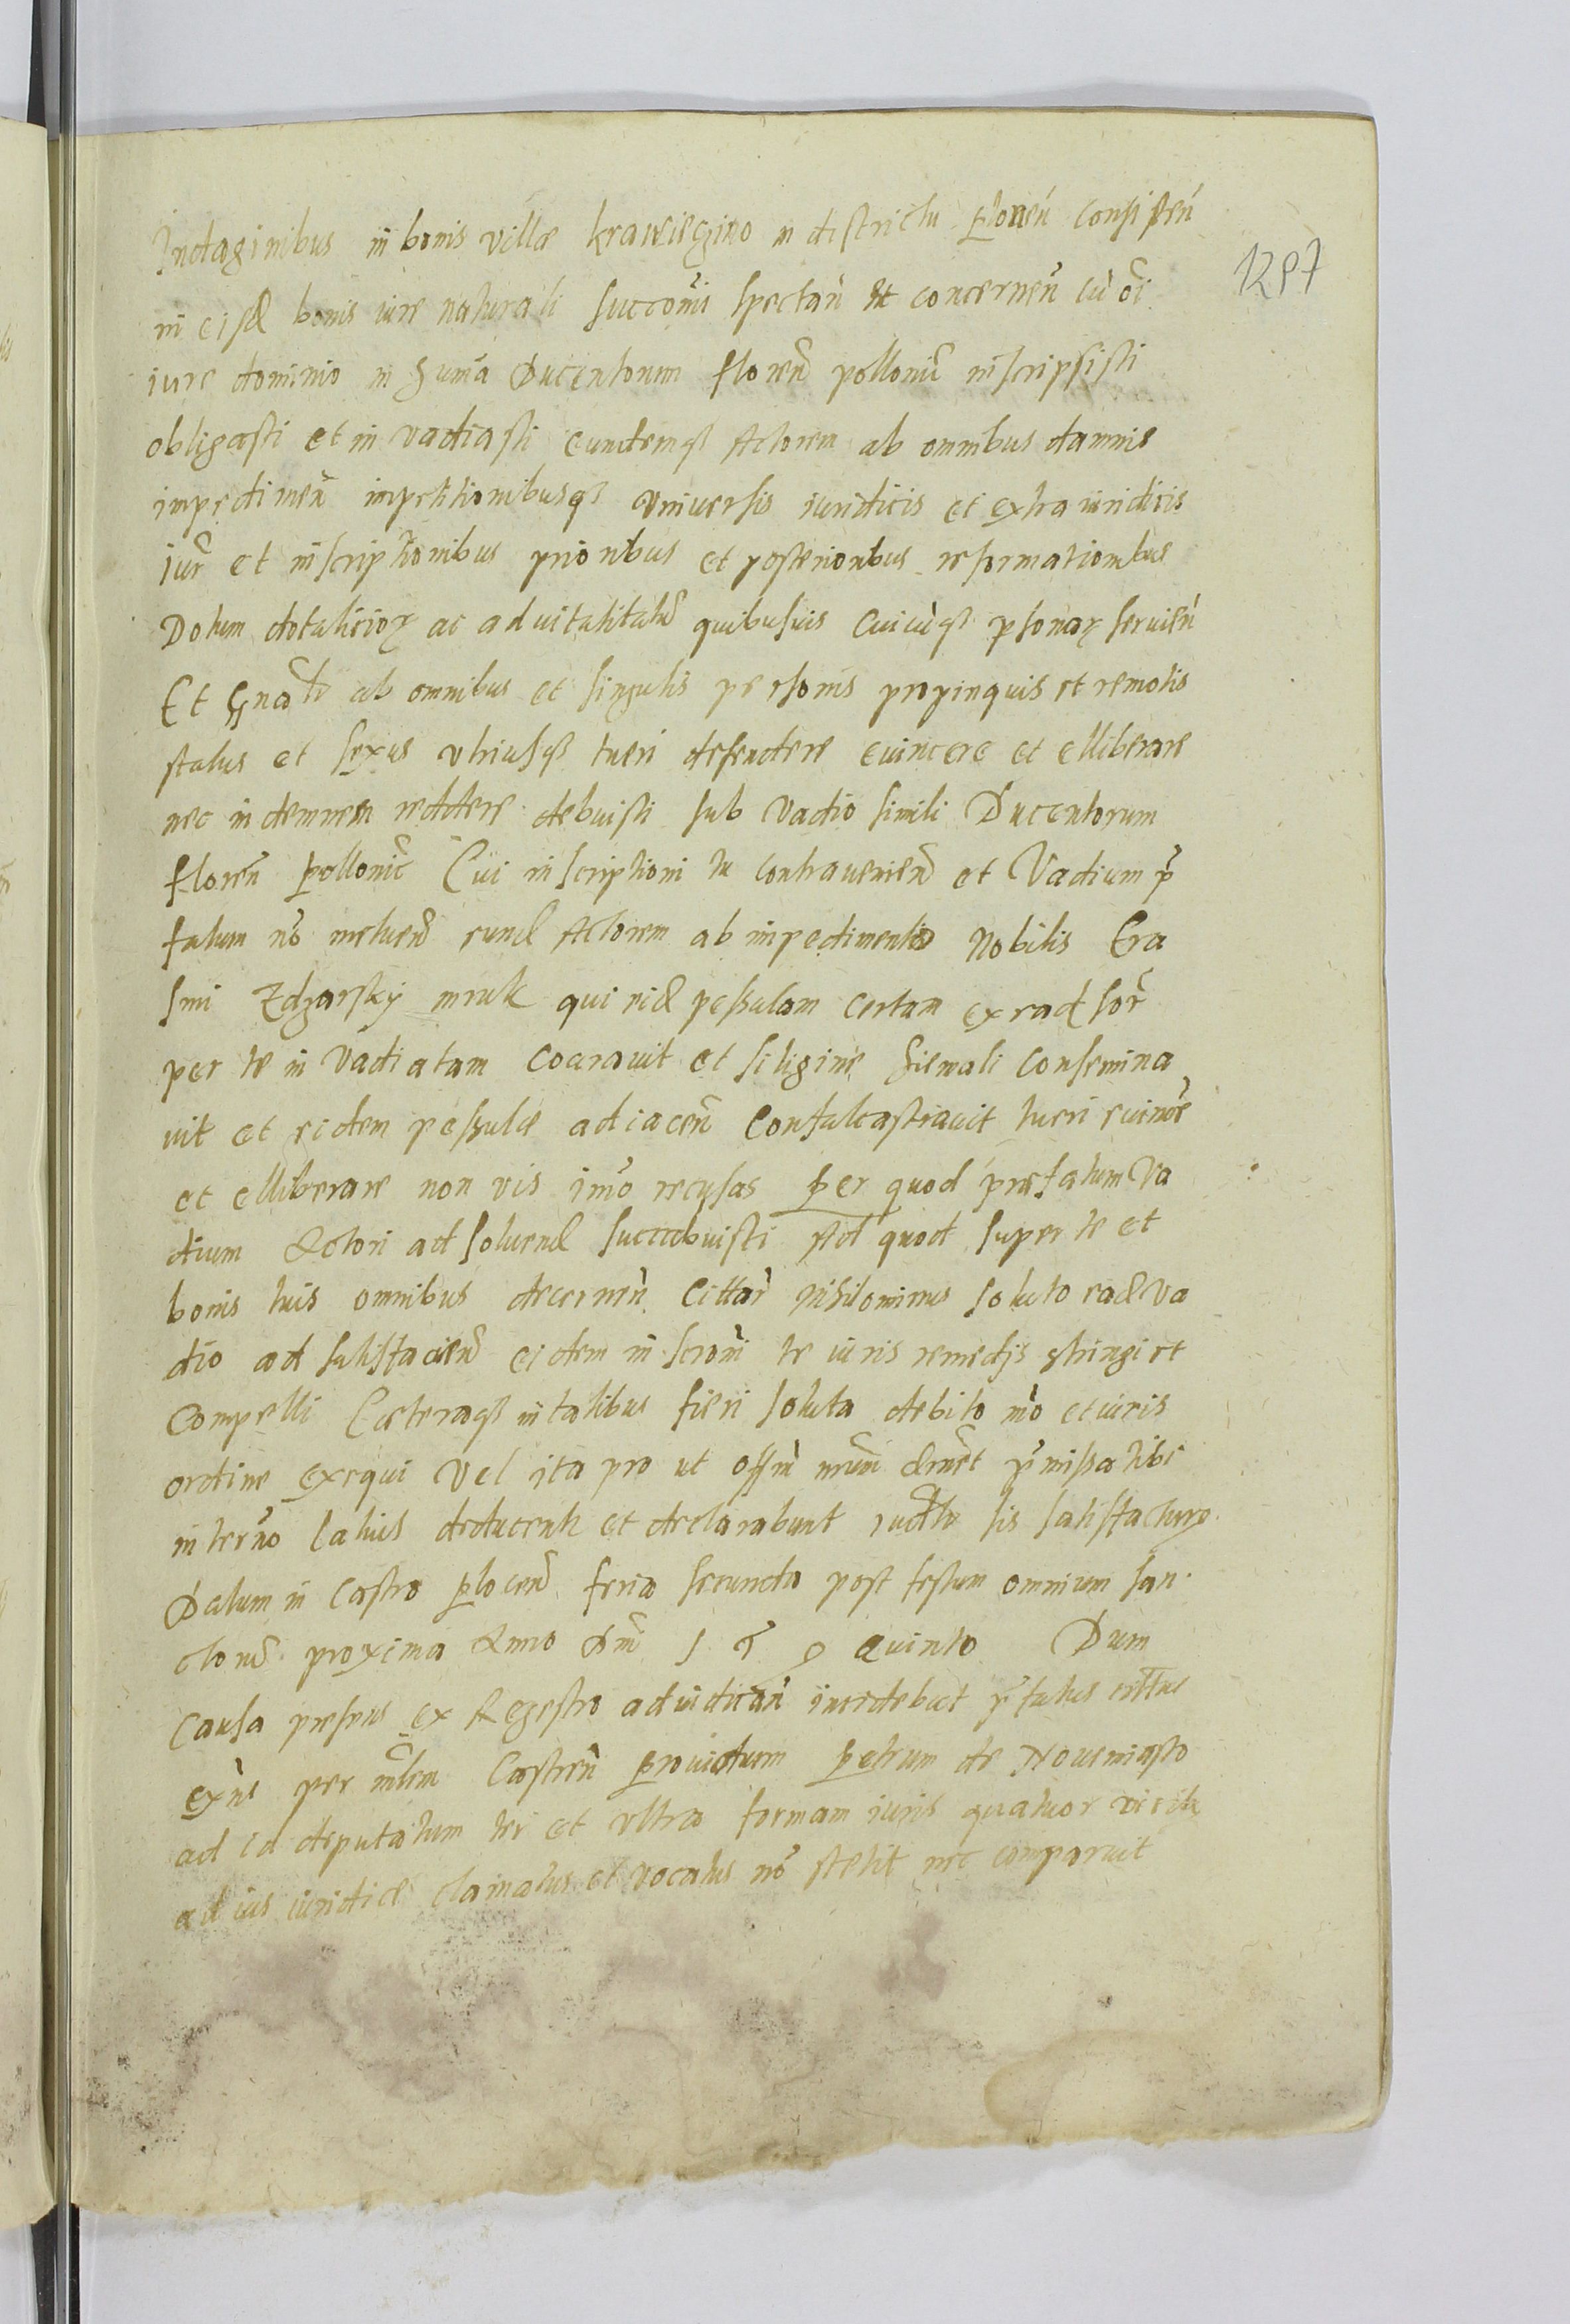 Indaginibus in bonis villæ krawieczino in districtu Ploceñ consisteñ
in eisd bonis iure naturali succomis spectañ et concerneñ cũ oi
iure dominio in Suma Ducentorum floreñ pollonic inscripsisti
obligasti et in vadiasti eundemqȝ Actorem ab omnibus damnis
impedimeñ impetitionibusqȝ vniuersis iuridicis et extra iuridicis
iur et inscriptionibus prioribus et posterioribus reformationibus
Dotum dotalicioꝝ ac aduitalitatu quibusuis cuicũqȝ psonaꝝ seruieñ
Et gnaħ ab omnibus et singulis personis propinquis et remotis
status et sexus vtriusqȝ tueri defendere euincere et elliberare
nec indemnem reddere debuisti sub vadio simili Ducentorum
floreñ Pollonic Cui inscriptioni tu contraueniens et Vadium p
fatum no metuens eund Actorem ab impedimentis Nobilis Era
smi Zdzarskÿ mruk qui eid pessulam certam ex rad sor
per te in vadiatam coaravit et siligine hiemali consemina
uit et eidem pessulæ adiaceñ confalcastrauit tueri euincre
et elliberare non vis imo recusas Per quod præfatum Va
dium Actori ad soluend succubuisti Ad quod super te et
bonis tuis omnibus decerneñ Cittar nihilominus soluto eod va
dio ad satisfacieñ eidem inscromi te iuris remedijs stringi et
Compelli Cæteraqȝ in talibus fieri soluta debito mo et iuris
ordine exequi Vel ita pro ut offm nrum dnet pmissa tibi
in termo latius deducentr et declarabunt iudtr sis satisfacturꝯ
Datum in Castro Ploceñ feria secunda post festum omnium san
ctorũ proxima Anno Dni 1 5 9 quinto Dum
Causa præsens ex Regestro adiudicañ incidebat pfatus cittus
exñs per mlem Castreñ Prouidum Petrum de Nouemiasto
ad id deputatum ter et vltra formam iuris quatuor vicib
ad ius iuridicæ clamatus et vocatus no stetit nec comparuit
1297